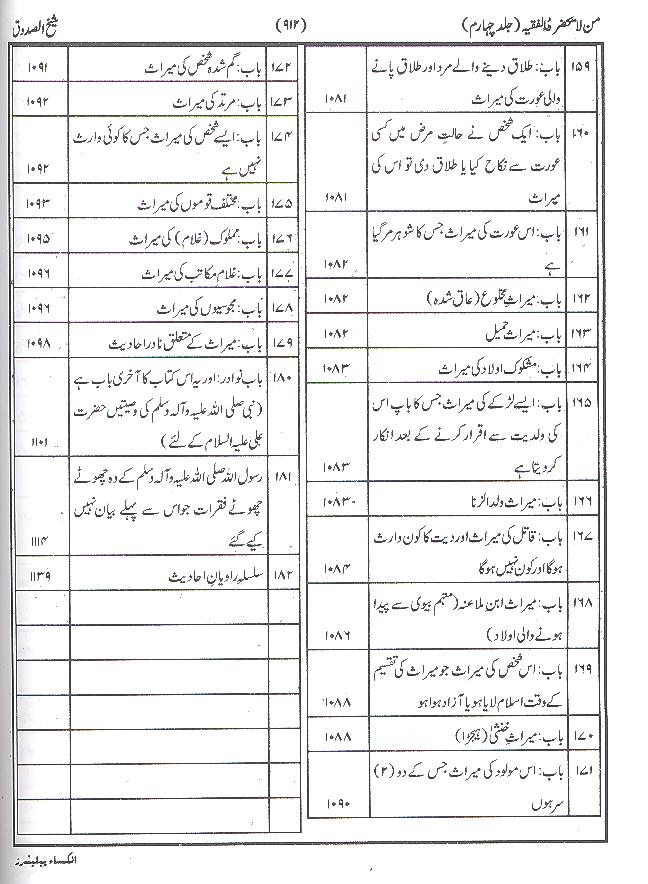 من لا یحضرہ الفقیہ (جلد چہارم)
(۹۱۲)
شیخ الصدوق
۱۵۹ باب: طلاق دینے والے مرد اور طلاق پانے
والی عورت کی میراث ۱۰۸۱
۱۶۰ باب: ایک شخص نے حالتِ مرض میں کسی
عورت سے نکاح کیا یا طلاق دی تو اس کی
میراث ۱۰۸۱
۱۶۱ باب: اس عورت کی میراث جس کا شوہر مر گیا
ہے ۱۰۸۲
۱۶۲ باب: میراثِ مخلوع (عاق شدہ) ۱۰۸۲
۱۶۳ باب: میراث حمیل ۱۰۸۲
۱۶۴ باب: مشکوک اولاد کی میراث ۱۰۸۳
۱۶۵ باب: ایسے لڑکے کی میراث جس کا باپ اس
کی ولدیت سے اقرار کرنے کے بعد انکار
کر دیتا ہے ۱۰۸۳
۱۶۶ باب: میراث ولد الزنا ۱۰۸۳-
۱۶۷ باب: قاتل کی میراث اور دیت کا کون وارث
ہوگا اور کون نہیں ہوگا ۱۰۸۴
۱۶۸ باب: میراث ابن ملاعنہ (متہم بیوی سے پیدا
ہونے والی اولاد) ۱۰۸۶
۱۶۹ باب: اس شخص کی میراث جو میراث کی تقسیم
کے وقت اسلام لایا ہو یا آزاد ہوا ہو ۱۰۸۸
۱۷۰ باب: میراثِ خنثیٰ (ہیجڑا) ۱۰۸۸
۱۷۱ باب: اس مولود کی میراث جس کے دو (۲)
سر ہوں ۱۰۹۰
۱۷۲ باب: گم شدہ شخص کی میراث ۱۰۹۱
۱۷۳ باب: مرتد کی میراث ۱۰۹۲
۱۷۴ باب: ایسے شخص کی میراث جس کا کوئی وارث
نہیں ہے ۱۰۹۲
۱۷۵ باب: مختلف قوموں کی میراث ۱۰۹۳
۱۷۶ باب: مملوک (غلام) کی میراث ۱۰۹۵
۱۷۷ باب: غلام مکاتب کی میراث ۱۰۹۶
۱۷۸ باب: مجوسیوں کی میراث ۱۰۹۶
۱۷۹ باب: میراث کے متعلق نادر احادیث ۱۰۹۸
۱۸۰ باب نوادر: اور یہ اس کتاب کا آخری باب ہے
(نبی صلی اللہ علیہ وآلہ وسلم کی وصیتیں حضرت
علی علیہ السلام کے لئے) ۱۱۰۱
۱۸۱ رسول اللہ صلی اللہ علیہ وآلہ وسلم کے وہ چھوٹے
چھوٹے فقرات جو اس سے پہلے بیان نہیں
کیے گئے ۱۱۱۴
۱۸۲ سلسلہ راویانِ احادیث ۱۱۳۹
الکساء پبلیشرز